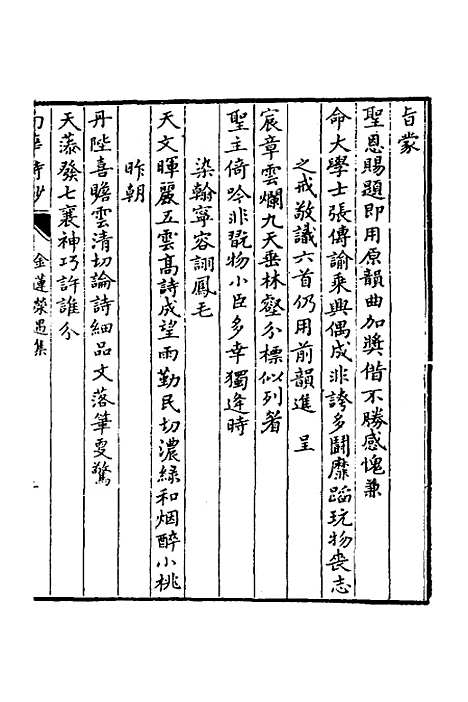 旨蒙
聖恩賜題即用原韻曲加奬借不勝感愧兼
命大學士張傳諭乘興偶成非誇多鬪靡蹈玩物喪志
之戒敬議六首仍用前韻進 呈
宸章雲爛九天垂林壑分標似列眉
聖主倚吟非翫物小臣多幸獨逢時
染翰寧容詡鳳毛
天文暉麗五雲高詩成望雨勤民切濃緑和烟醉小桃
昨朝
丹陛喜瞻雲清切論詩細品文落筆更驚
天藻發七襄神巧許誰分
詩鈔
金蓮榮遇集